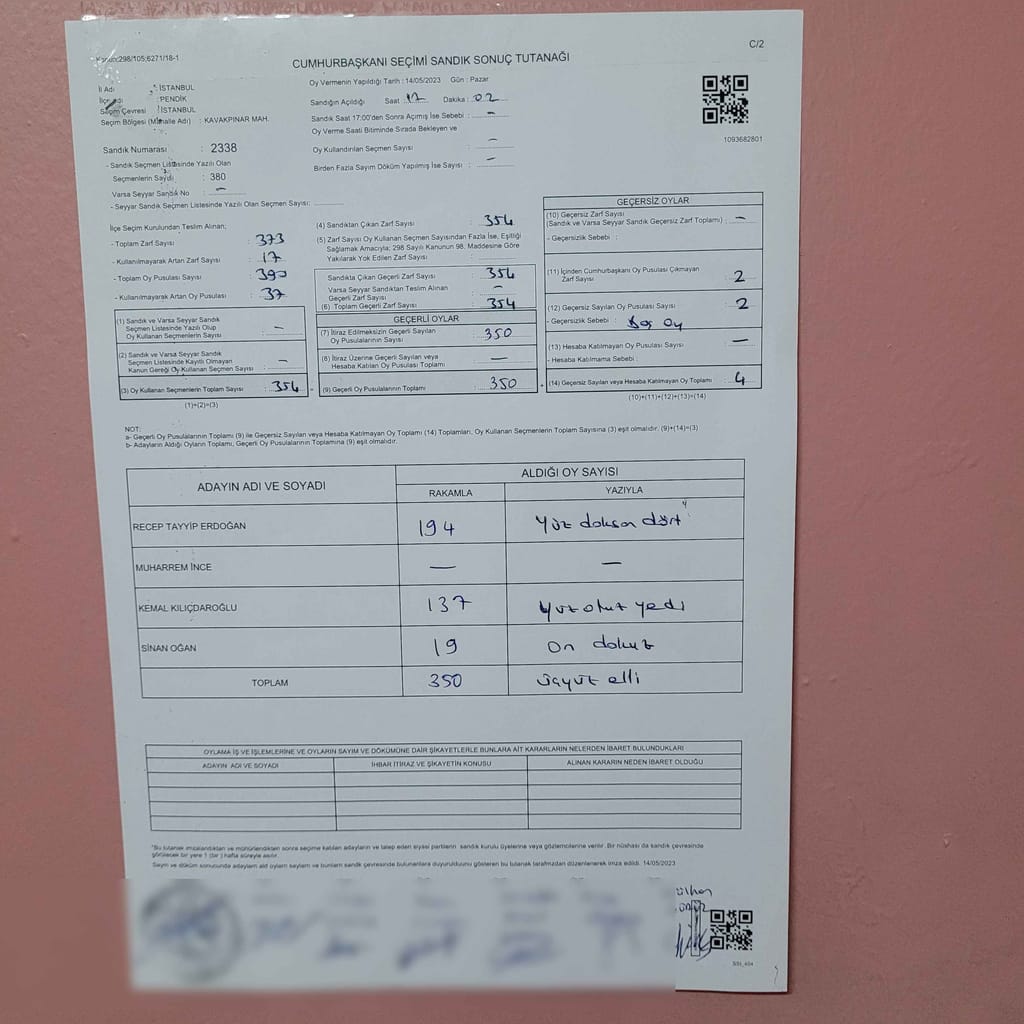 Kanun:298/105;6271/18-1
C/2
CUMHURBAŞKANI SEÇİMİ SANDIK SONUÇ TUTANAĞI
İl Adı : İSTANBUL
İlçe Adı : PENDİK
Seçim Çevresi : İSTANBUL
Seçim Bölgesi (Mahalle Adı) : KAVAKPINAR MAH.
Sandık Numarası : 2338
- Sandık Seçmen Listesinde Yazılı Olan
Seçmenlerin Sayısı : 380
Varsa Seyyar Sandık No : –
- Seyyar Sandık Seçmen Listesinde Yazılı Olan Seçmen Sayısı:
Oy Vermenin Yapıldığı Tarih : 14/05/2023 Gün : Pazar
Sandığın Açıldığı Saat : 17 Dakika : 02
Sandık Saat 17:00'den Sonra Açılmış İse Sebebi : –
Oy Verme Saati Bitiminde Sırada Bekleyen ve
Oy Kullandırılan Seçmen Sayısı : –
Birden Fazla Sayım Döküm Yapılmış İse Sayısı : –
1093682801
İlçe Seçim Kurulundan Teslim Alınan;
- Toplam Zarf Sayısı : 373
- Kullanılmayarak Artan Zarf Sayısı : 17
- Toplam Oy Pusulası Sayısı : 390
- Kullanılmayarak Artan Oy Pusulası : 37
(1) Sandık ve Varsa Seyyar Sandık
Seçmen Listesinde Yazılı Olup
Oy Kullanan Seçmenlerin Sayısı : –
(2) Sandık ve Varsa Seyyar Sandık
Seçmen Listesinde Kayıtlı Olmayan
Kanun Gereği Oy Kullanan Seçmen Sayısı : –
(3) Oy Kullanan Seçmenlerin Toplam Sayısı : 354
(1)+(2)=(3)
(4) Sandıktan Çıkan Zarf Sayısı : 354
(5) Zarf Sayısı Oy Kullanan Seçmen Sayısından Fazla İse, Eşitliği
Sağlamak Amacıyla; 298 Sayılı Kanunun 98. Maddesine Göre
Yakılarak Yok Edilen Zarf Sayısı :
Sandıkta Çıkan Geçerli Zarf Sayısı : 354
Varsa Seyyar Sandıktan Teslim Alınan
Geçerli Zarf Sayısı : –
(6) Toplam Geçerli Zarf Sayısı : 354
GEÇERLİ OYLAR
(7) İtiraz Edilmeksizin Geçerli Sayılan
Oy Pusulalarının Sayısı : 350
(8) İtiraz Üzerine Geçerli Sayılan veya
Hesaba Katılan Oy Pusulası Toplamı : —
(9) Geçerli Oy Pusulalarının Toplamı : 350
GEÇERSİZ OYLAR
(10) Geçersiz Zarf Sayısı
(Sandık ve Varsa Seyyar Sandık Geçersiz Zarf Toplamı) : –
- Geçersizlik Sebebi :
(11) İçinden Cumhurbaşkanı Oy Pusulası Çıkmayan
Zarf Sayısı : 2
(12) Geçersiz Sayılan Oy Pusulası Sayısı : 2
- Geçersizlik Sebebi : Boş Oy
(13) Hesaba Katılmayan Oy Pusulası Sayısı : —
- Hesaba Katılmama Sebebi :
(14) Geçersiz Sayılan veya Hesaba Katılmayan Oy Toplamı : 4
(10)+(11)+(12)+(13)=(14)
NOT:
a- Geçerli Oy Pusulalarının Toplamı (9) ile Geçersiz Sayılan veya Hesaba Katılmayan Oy Toplamı (14) Toplamları, Oy Kullanan Seçmenlerin Toplam Sayısına (3) eşit olmalıdır. (9)+(14)=(3)
b- Adayların Aldığı Oyların Toplamı, Geçerli Oy Pusulalarının Toplamına (9) eşit olmalıdır.
ADAYIN ADI VE SOYADI
ALDIĞI OY SAYISI
RAKAMLA YAZIYLA
RECEP TAYYİP ERDOĞAN 194 Yüz doksan dört
MUHARREM İNCE — —
KEMAL KILIÇDAROĞLU 137 Yüz otuz yedi
SİNAN OĞAN 19 On dokuz
TOPLAM 350 Üçyüz elli
OYLAMA İŞ VE İŞLEMLERİNE VE OYLARIN SAYIM VE DÖKÜMÜNE DAİR ŞİKAYETLERLE BUNLARA AİT KARARLARIN NELERDEN İBARET BULUNDUKLARI
ADAYIN ADI VE SOYADI İHBAR İTİRAZ VE ŞİKAYETİN KONUSU ALINAN KARARIN NEDEN İBARET OLDUĞU
*Bu tutanak imzalandıktan ve mühürlendikten sonra seçime katılan adayların ve talep eden siyasi partilerin sandık kurulu üyelerine veya gözlemcilerine verilir. Bir nüshası da sandık çevresinde
görülecek bir yere 1 (bir) hafta süreyle asılır.
Sayım ve döküm sonucunda adayların aldığı oyların sayılarını ve bunların sandık çevresinde bulunanlara duyurulduğunu gösteren bu tutanak tarafımızdan düzenlenerek imza edildi. 14/05/2023